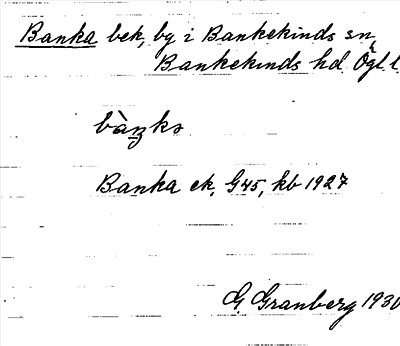 Banka bek, by i Bankekinds sn,
Bankekinds hd. Ögl l.
bàŋks
Banka ek. G45, kb 1927
G. Granberg 1930